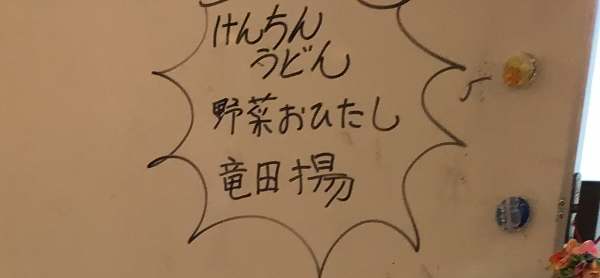 けんちん
うどん
野菜おひたし
竜田揚